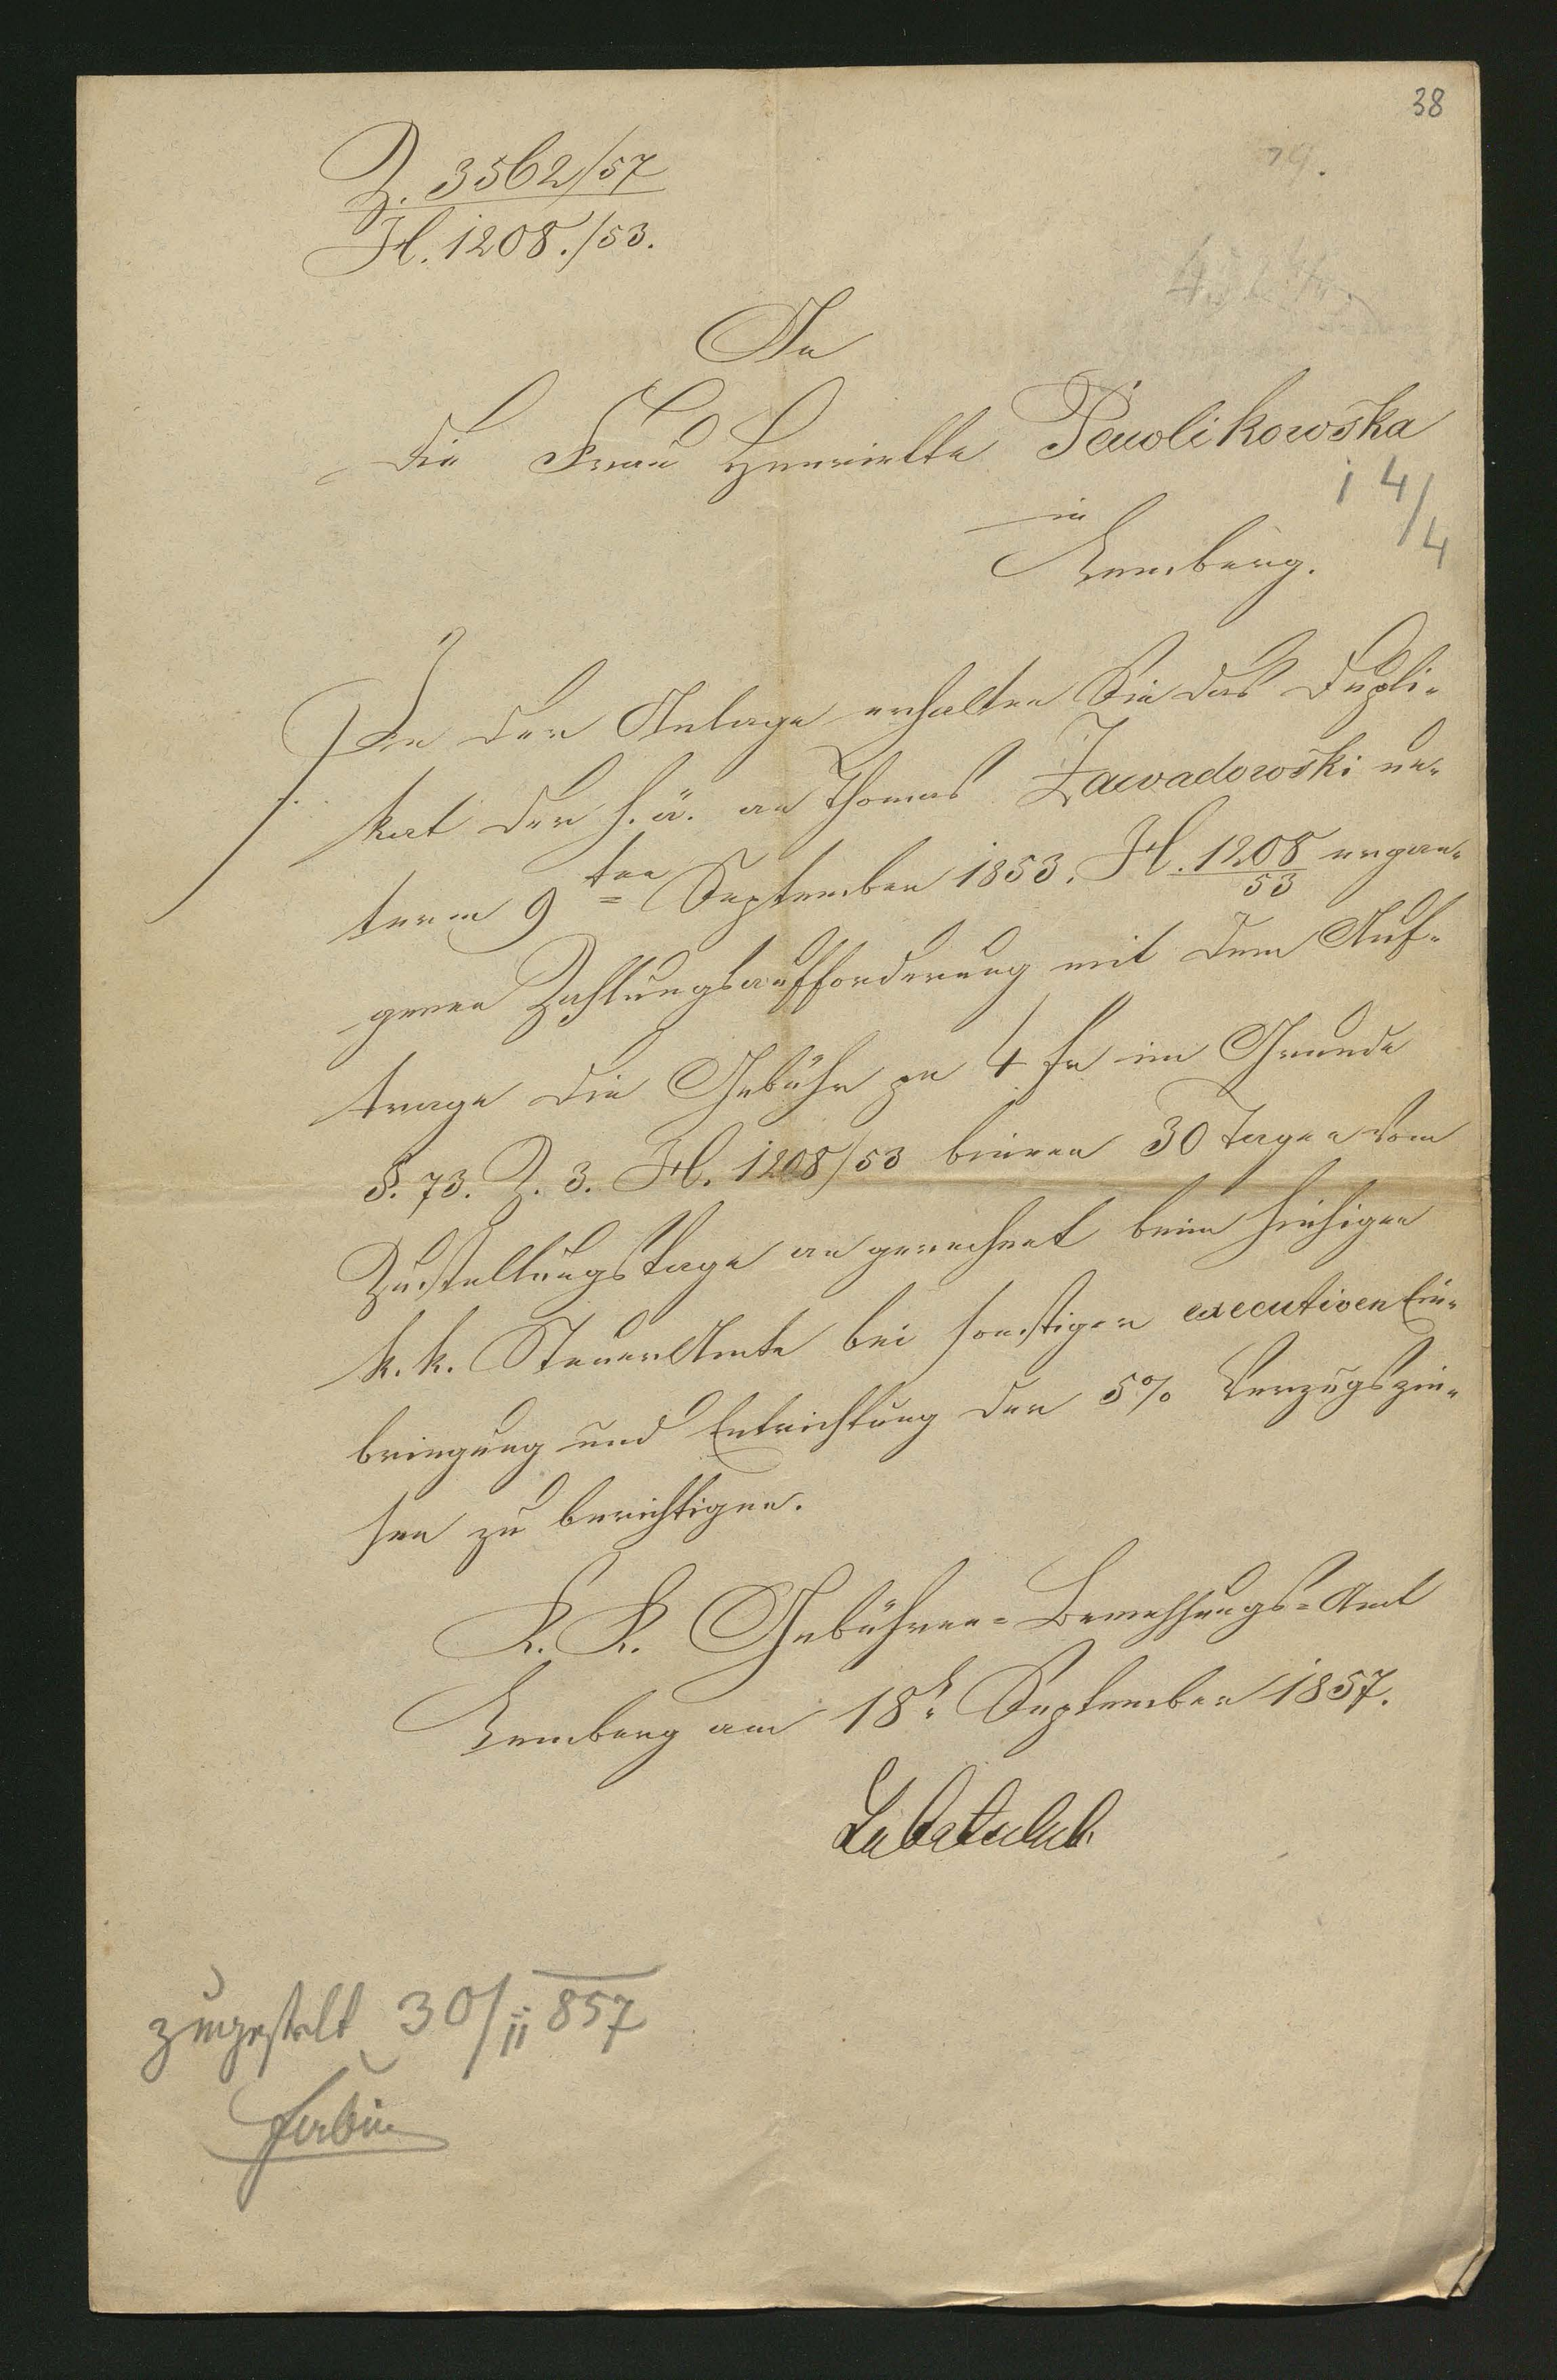 38
Z. 3562/57
H. 1208./53.
An
die Frau Henriette Pawlikowska
in
Lemberg.
14/4
In der Anlage erhalten Sie das Dupli-
kat der h. ä. an Thomas Zawadowski un-
term 9ten September 1853. H. 1208/53 ergan-
genen Zahlungsaufforderung mit dem Auf-
trage die Gebühr pr 4 fr im Grunde
§. 73. Z. 3. H. 1208/53 binnen 30 Tagen vom
Zustellungstage an gerechnet beim hiesigen
k. k. SteuerAmte bei sonstiger executiven Ein-
bringung und Entrichtung der 5% Verzugszin-
sen zu berichtigen.
K. K. Gebühren-Bemessungs-Amt
Lemberg am 18t September 1857.
zugestelt 30/11 857